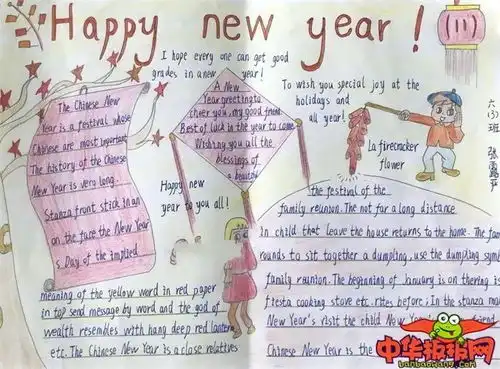 Happy new year!
I hope every one can get good
grades in a new year!
The Chinese New
Year is a festival whose
Chinese are most important
The history of the Chinese
New Year is very long.
Stanza front stick in an
on the face the New Year
s Day of the implied
meaning of the yellow word in red paper
in top send message by word and the god of
wealth resembles with hang deep red lantern
etc. The Chinese New Year is a close relatives
A New
Year greeting to
cheer you, my good friend
Best of luck in the year to come
Wishing you all the
blessings of
a beautiful
Happy
new
year to you all!
To wish you special joy at the
holidays and
all year!
La firecracker
flower
六(3)班
the festival of the
family reunion. The not far a long distance
In child that leave the house returns to the home. The
rounds to sit together a dumpling, use the dumpling
family reunion. The beginning of January is on the
fiesta cooking stove etc. rites before; In the stanza
New Year's visit the child New
Chinese New Year is the
中华板报网
banbaowang.com